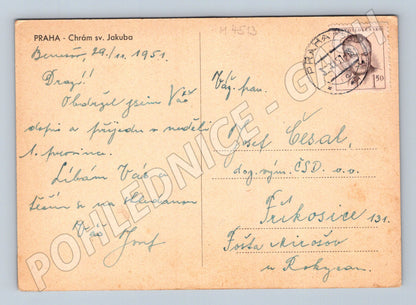 PRAHA - Chrám sv. Jakuba
M 4513
Benešov, 29./11. 1951.
Drazí!
Obdržel jsem Váš
dopis a přijedu v neděli
1. prosince.
Líbám Vás a
těším se na shledanou
Váš Josef
Váž. pan
Josef Česal,
dog. vým. ČSD. v. v.
Příkosice 131.
Pošta Mirošov
u Rokycan.
PRAHA
ČESKOSLOVENSKO
1,50
POHLEDNICE - G